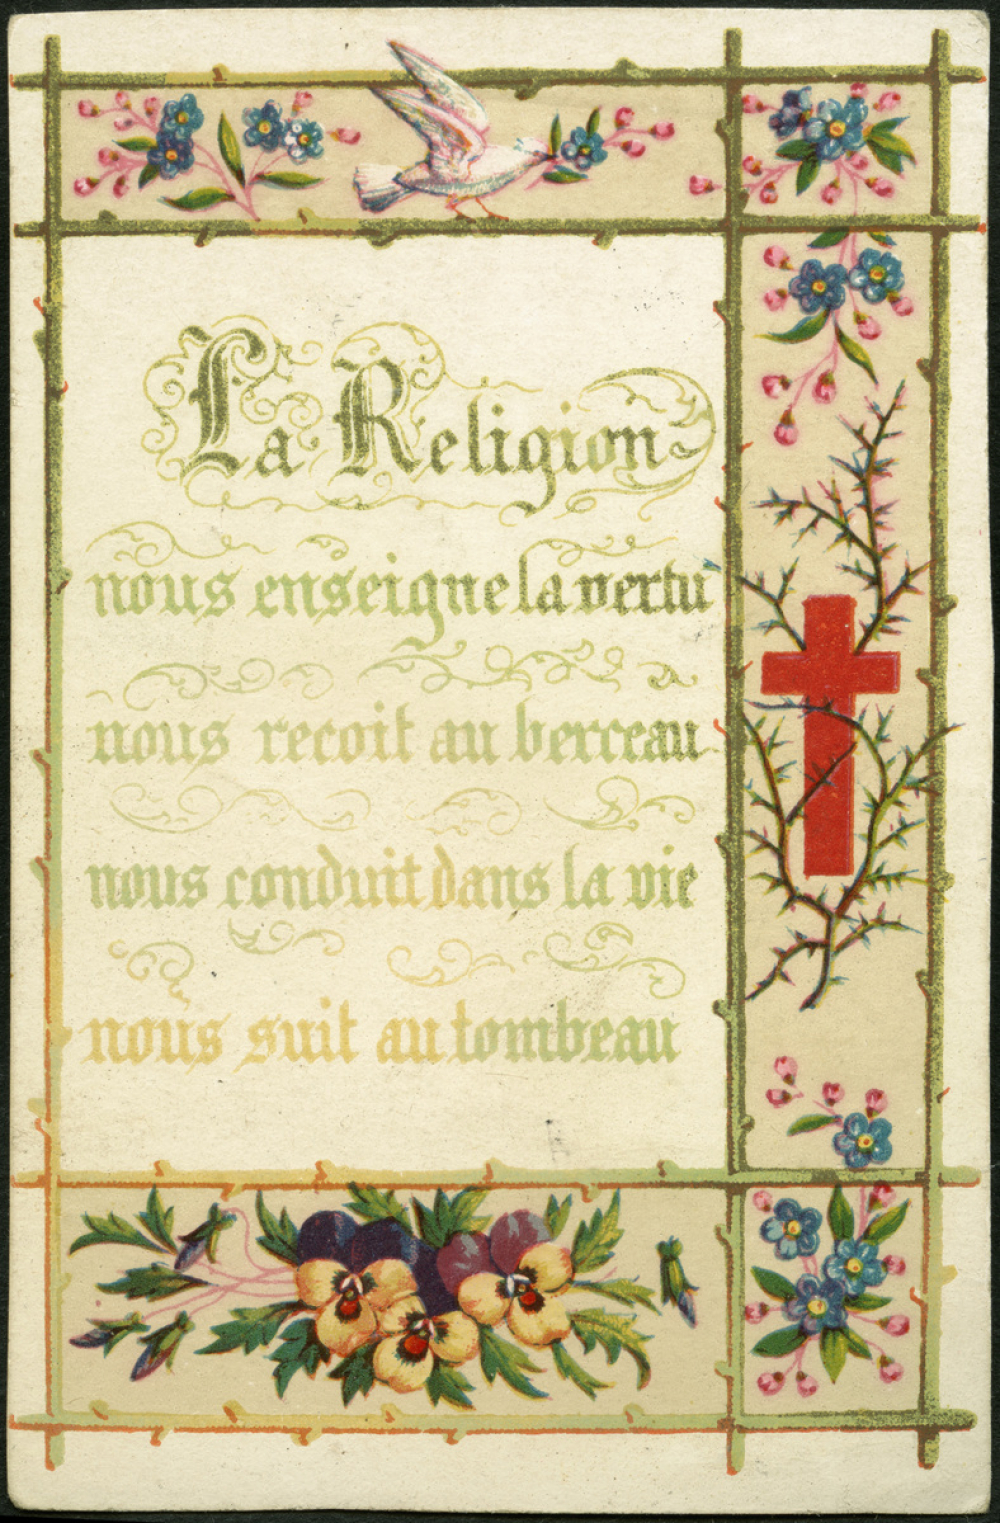 La Religion
nous enseigne la vertu
nous recoit au berceau
nous conduit dans la vie
nous suit au tombeau